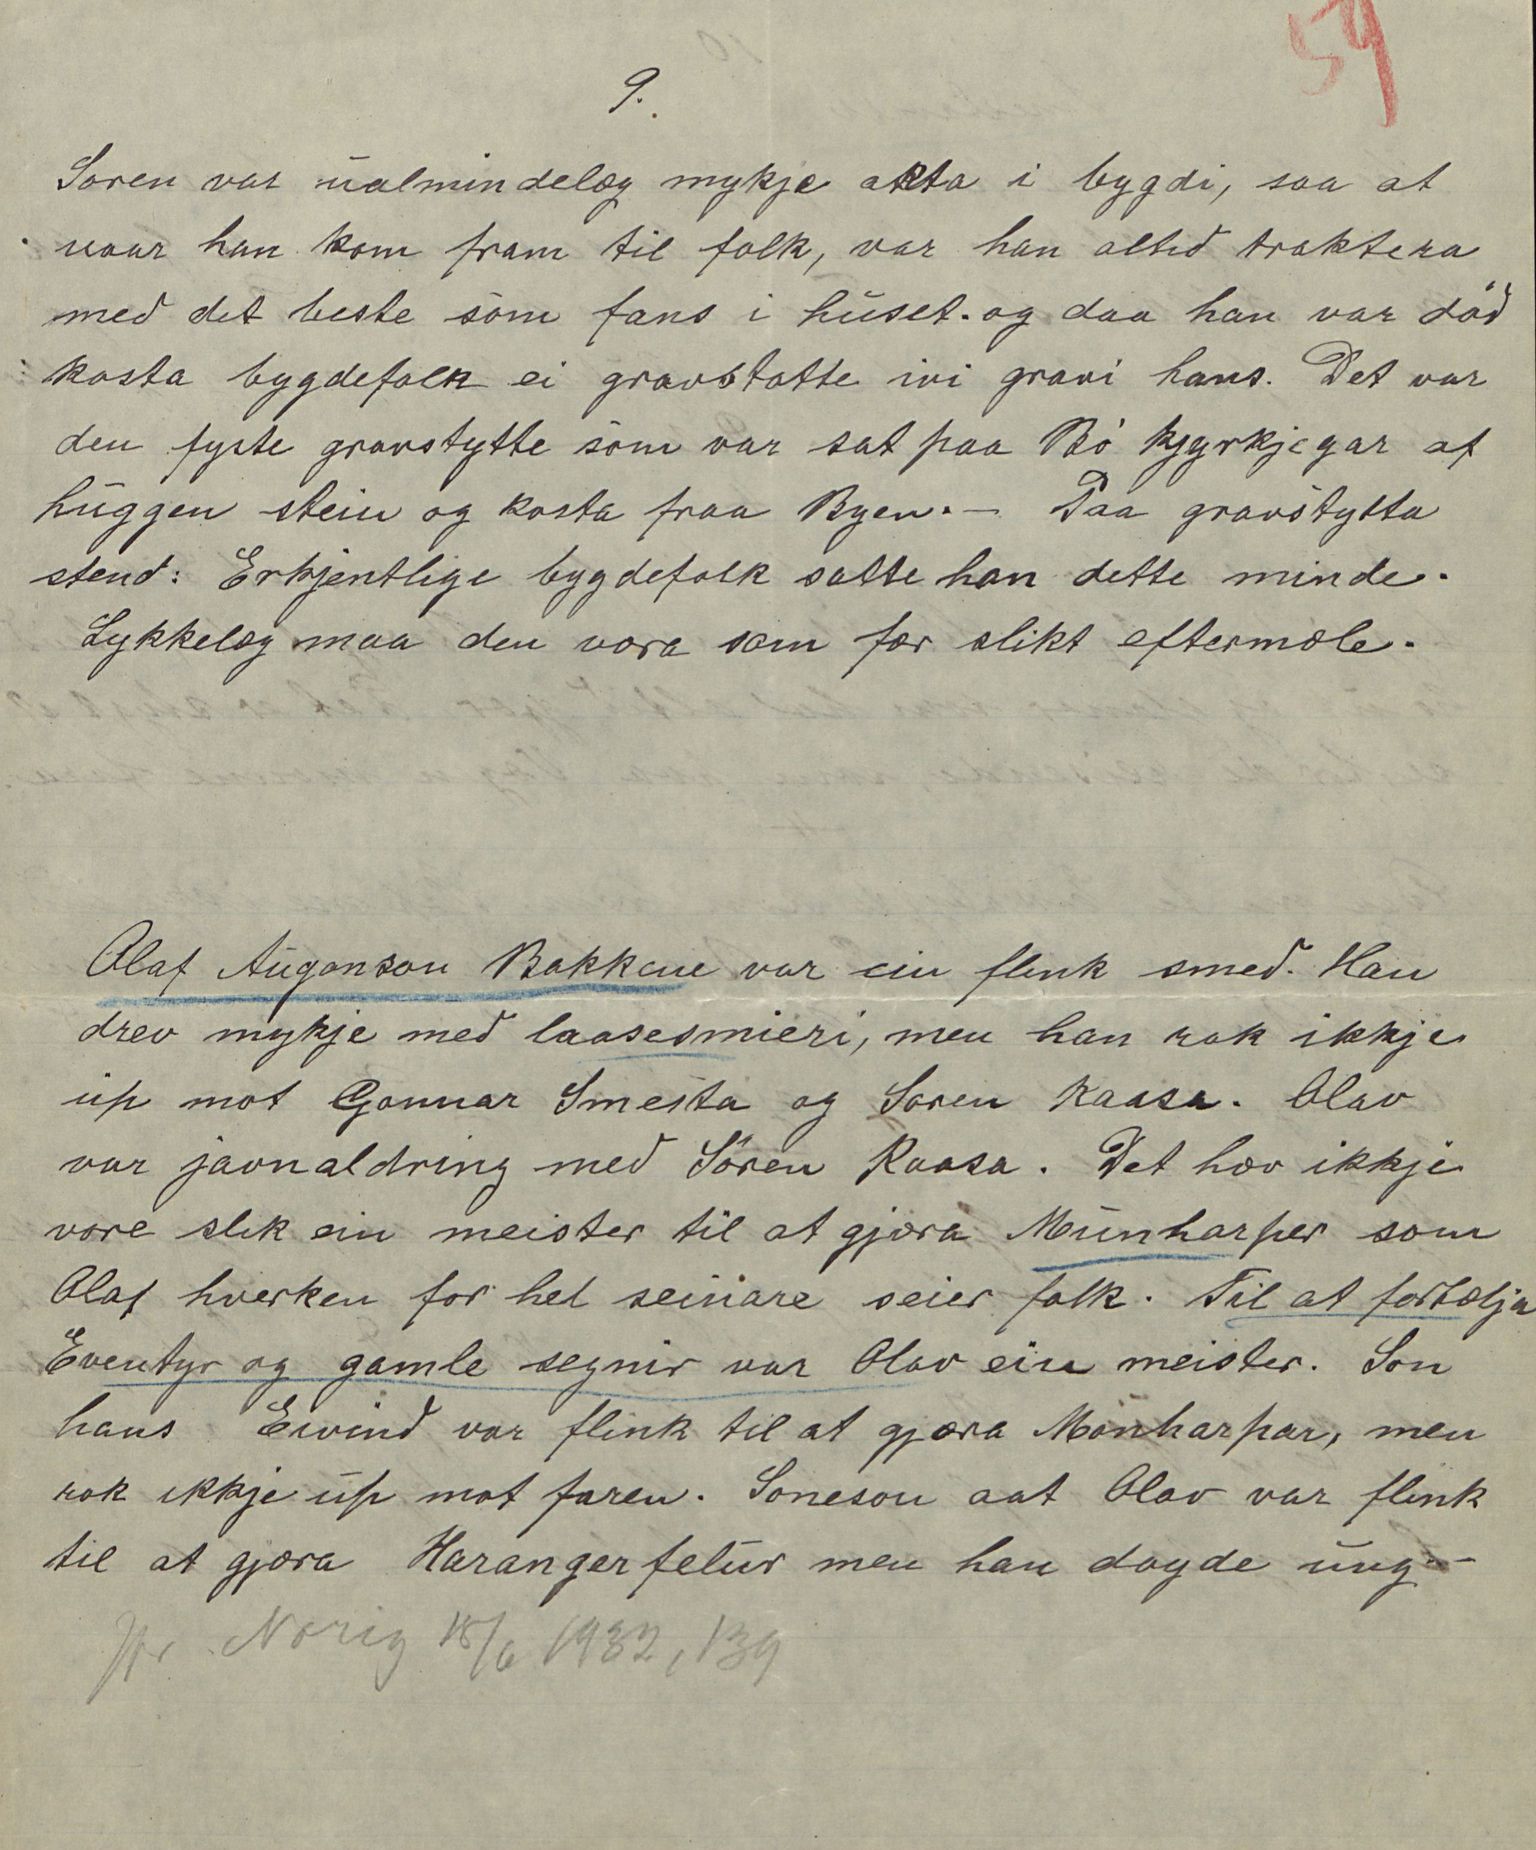 54
9.
Soren var ualmindeleg mykje akta i bygdi, saa at
naar han kom fram til folk, var han altid traktera
med det beste som fans i huset. og daa han var död
kosta bygdefolk ei gravstøtte ivi gravi hans. Det var
den fyste gravstytte som var sat paa Bö kjyrkjegar af
huggen stein og kosta fraa Byen. – Paa gravstytta
stend: Erkjentlige bygdefolk satte han dette minde.
Lykkeleg maa den vera som fær slikt eftermæle.
Olaf Augonson Bakkene var ein flink smed. Han
drev mykje med laasesmieri, men han rak ikkje
up mot Gonnar Smesta og Soren Kaasa. Olav
var javnaldring med Sören Kaasa. Det hev ikkje
vore slik ein meister til at gjera Munharper som
Olaf hverken for hel seinare seier folk. Til at fortælja
Eventyr og gamle segnir var Olav ein meister. Son
hans Eivind var flink til at gjæra Mönharpar, men
rak ikkje up mot faren. Soneson aat Olav var flink
til at gjæra Harangerfelur men han døyde ung –
Jfr. Norig 15/6 1932, 139